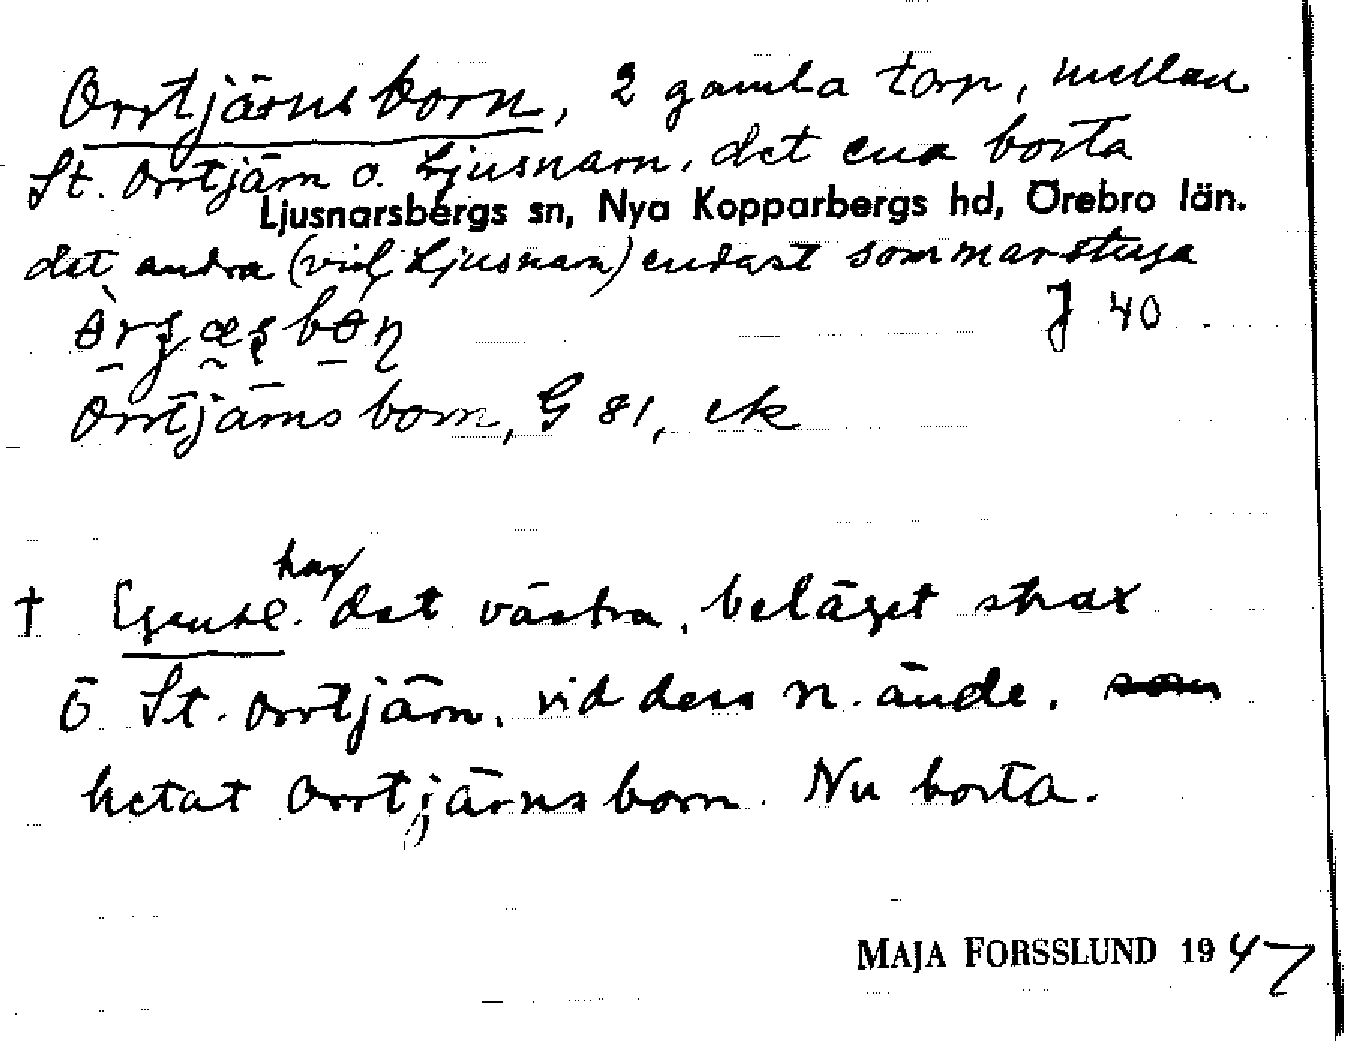 Orrtjärnsborn, 2 gamla torp, mellan
St. Orrtjärn o. Ljusnarn, det ena borta
Ljusnarsbergs sn, Nya Kopparbergs hd, Örebro län.
det andra (vid Ljusnarn) endast sommarstuga
J 40
Orrtjärnsborn, G 81, ek
har
† det västra, beläget strax
ö St. Orrtjärn, vid dess n. ände.
hetat Orrtjärnsborn. Nu borta.
MAJA FORSSLUND 1947